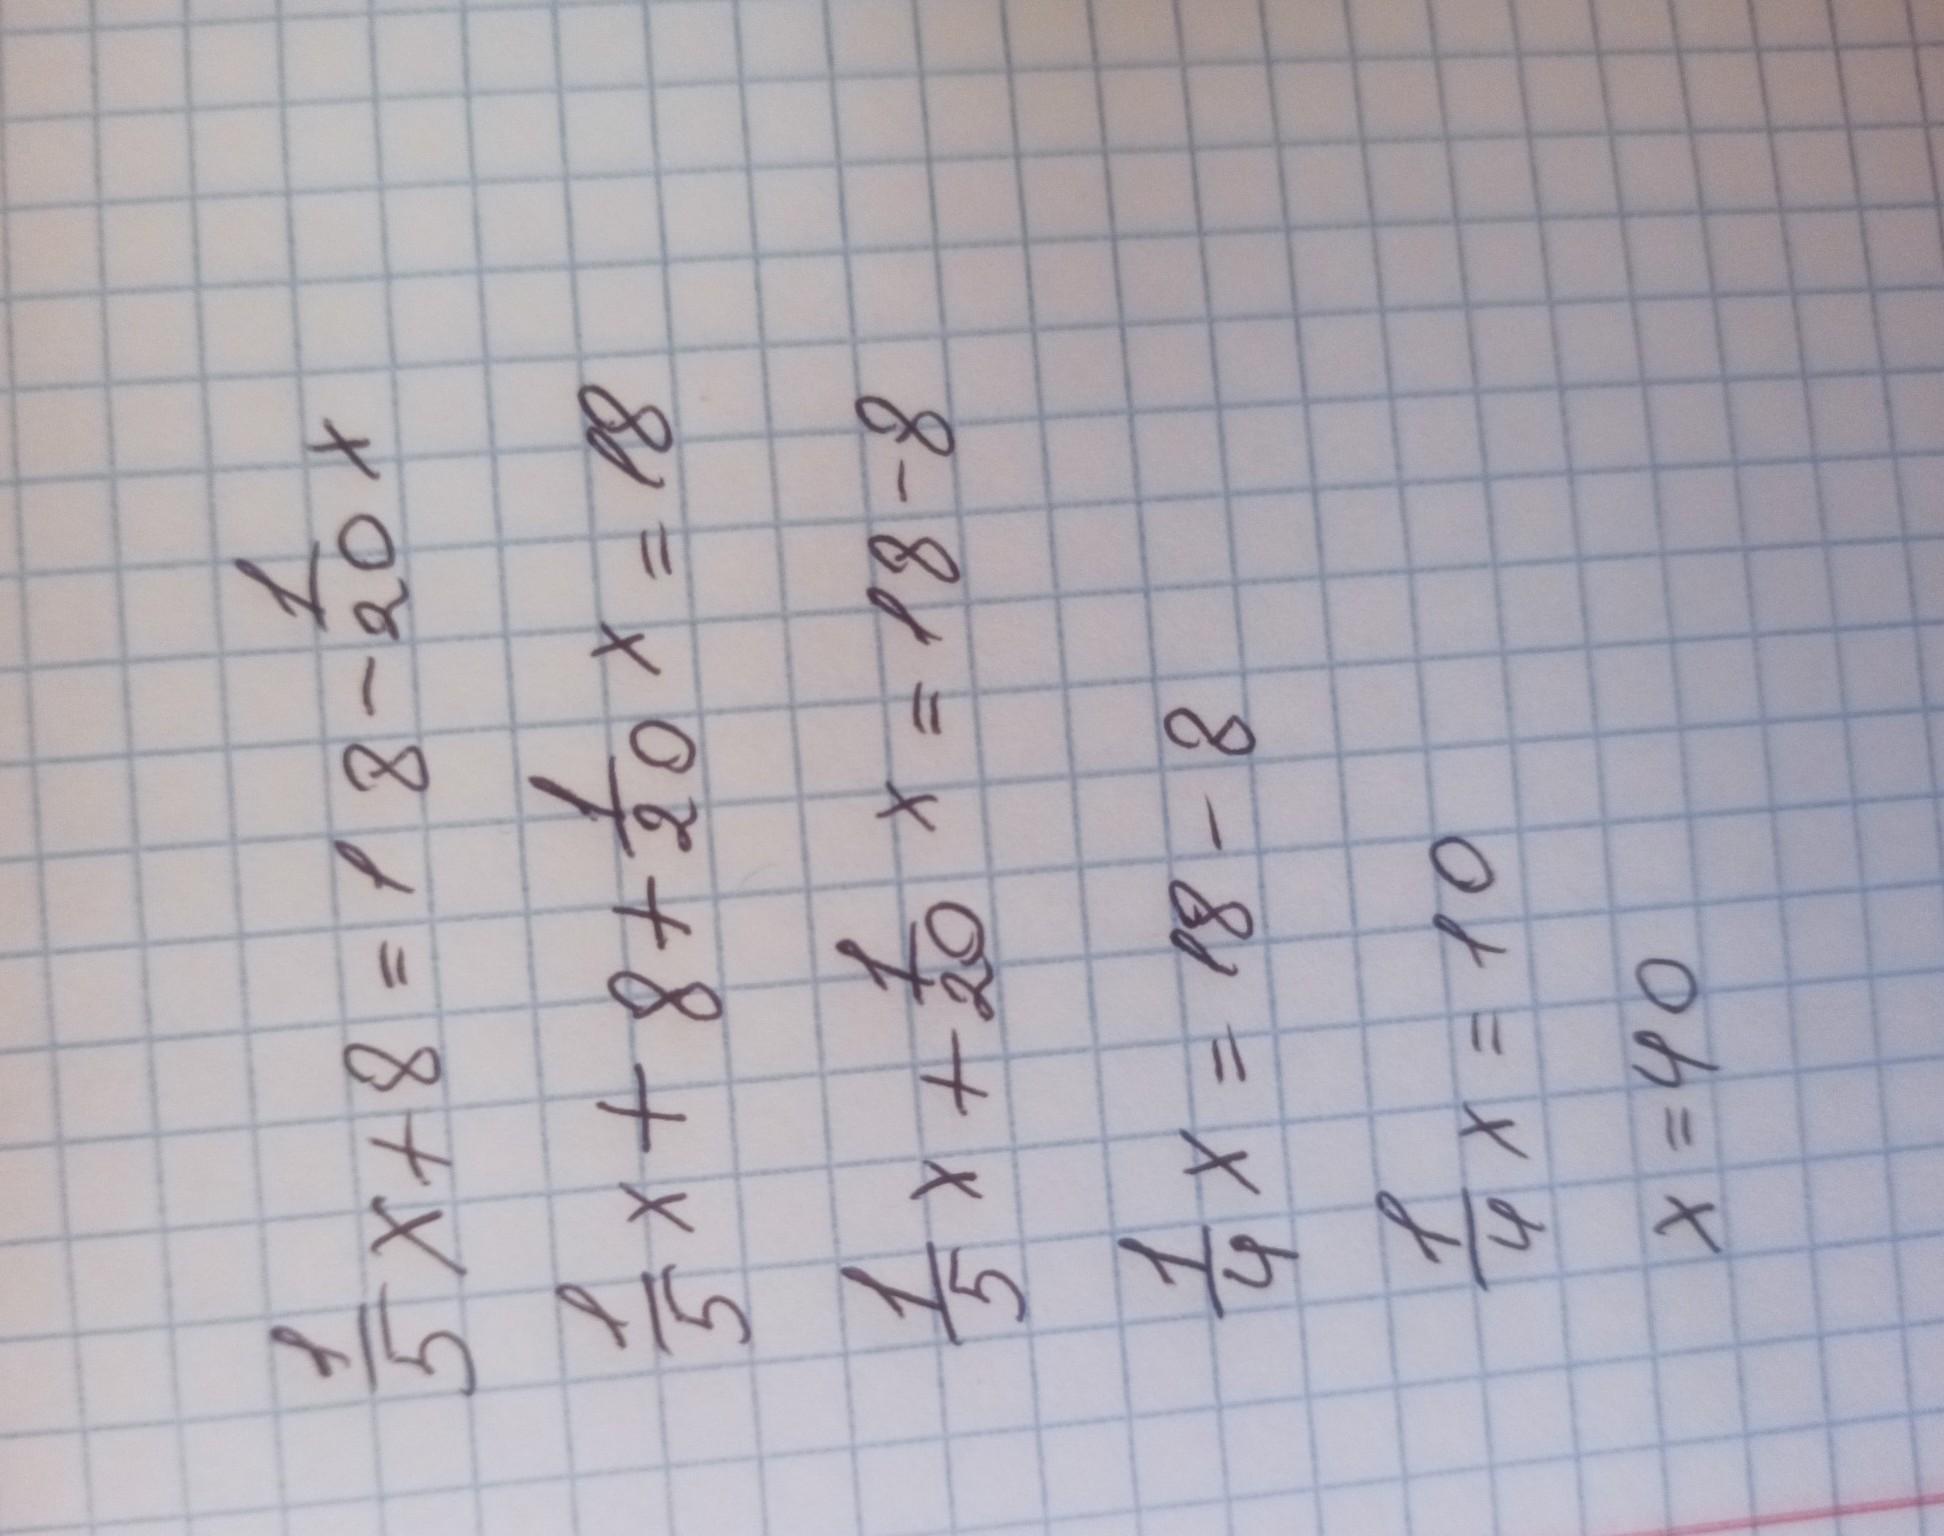 1/5 x + 8 = 18 - 1/20 x
1/5 x + 8 + 1/20 x = 18
1/5 x + 1/20 x = 18 - 8
1/4 x = 18 - 8
1/4 x = 10
x = 40